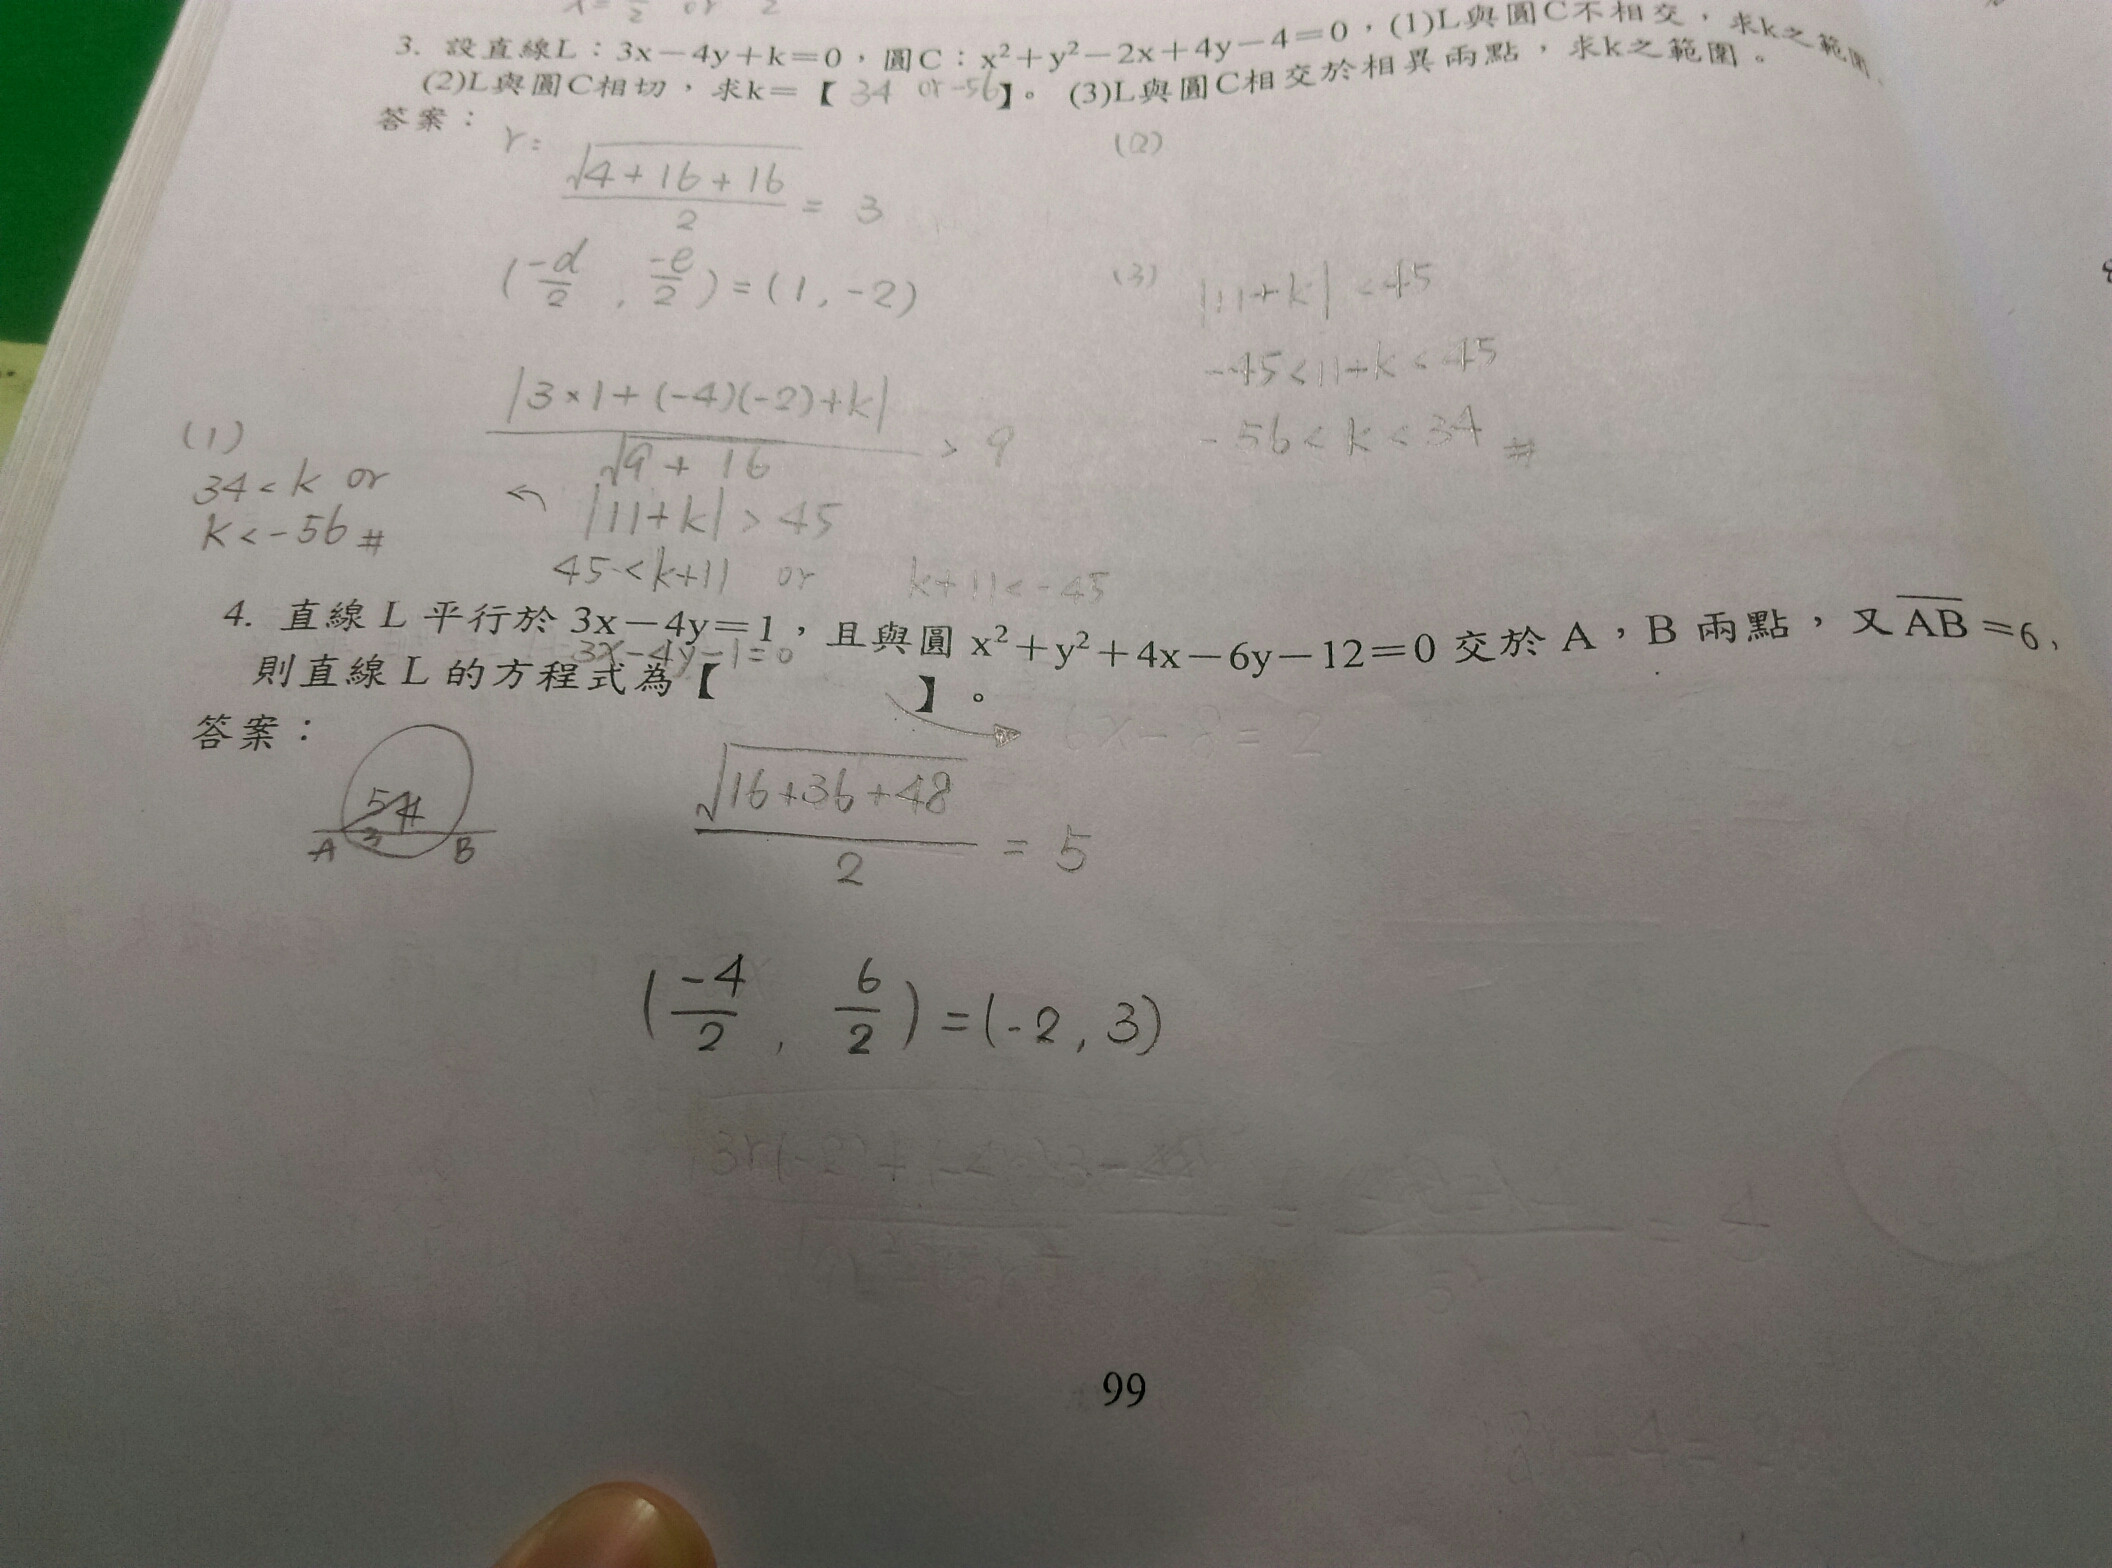 3. 設直線L：3x－4y＋k＝0，圓C：x²＋y²－2x＋4y－4＝0，(1)L與圓C不相交，求k之範圍，
(2)L與圓C相切，求k＝【 34 or -56 】。(3)L與圓C相交於相異兩點，求k之範圍。
答案：
r = √(4+16+16) / 2 = 3
(2)
(-d/2 , -e/2) = (1, -2)
(3) |11+k| < 45
-45 < 11+k < 45
-56 < k < 34 #
|3×1+(-4)(-2)+k| / √(9+16) > 9
(1)
34 < k or
k < -56 #
|11+k| > 45
45 < k+11 or k+11 < -45
4. 直線 L 平行於 3x－4y＝1，且與圓 x²＋y²＋4x－6y－12＝0 交於 A，B 兩點，又 AB＝6，
3x-4y-1=0
則直線 L 的方程式為【 】。
答案：
6x-8=2
5 4
A 3 B
√(16+36+48) / 2 = 5
(-4/2 , 6/2) = (-2, 3)
99